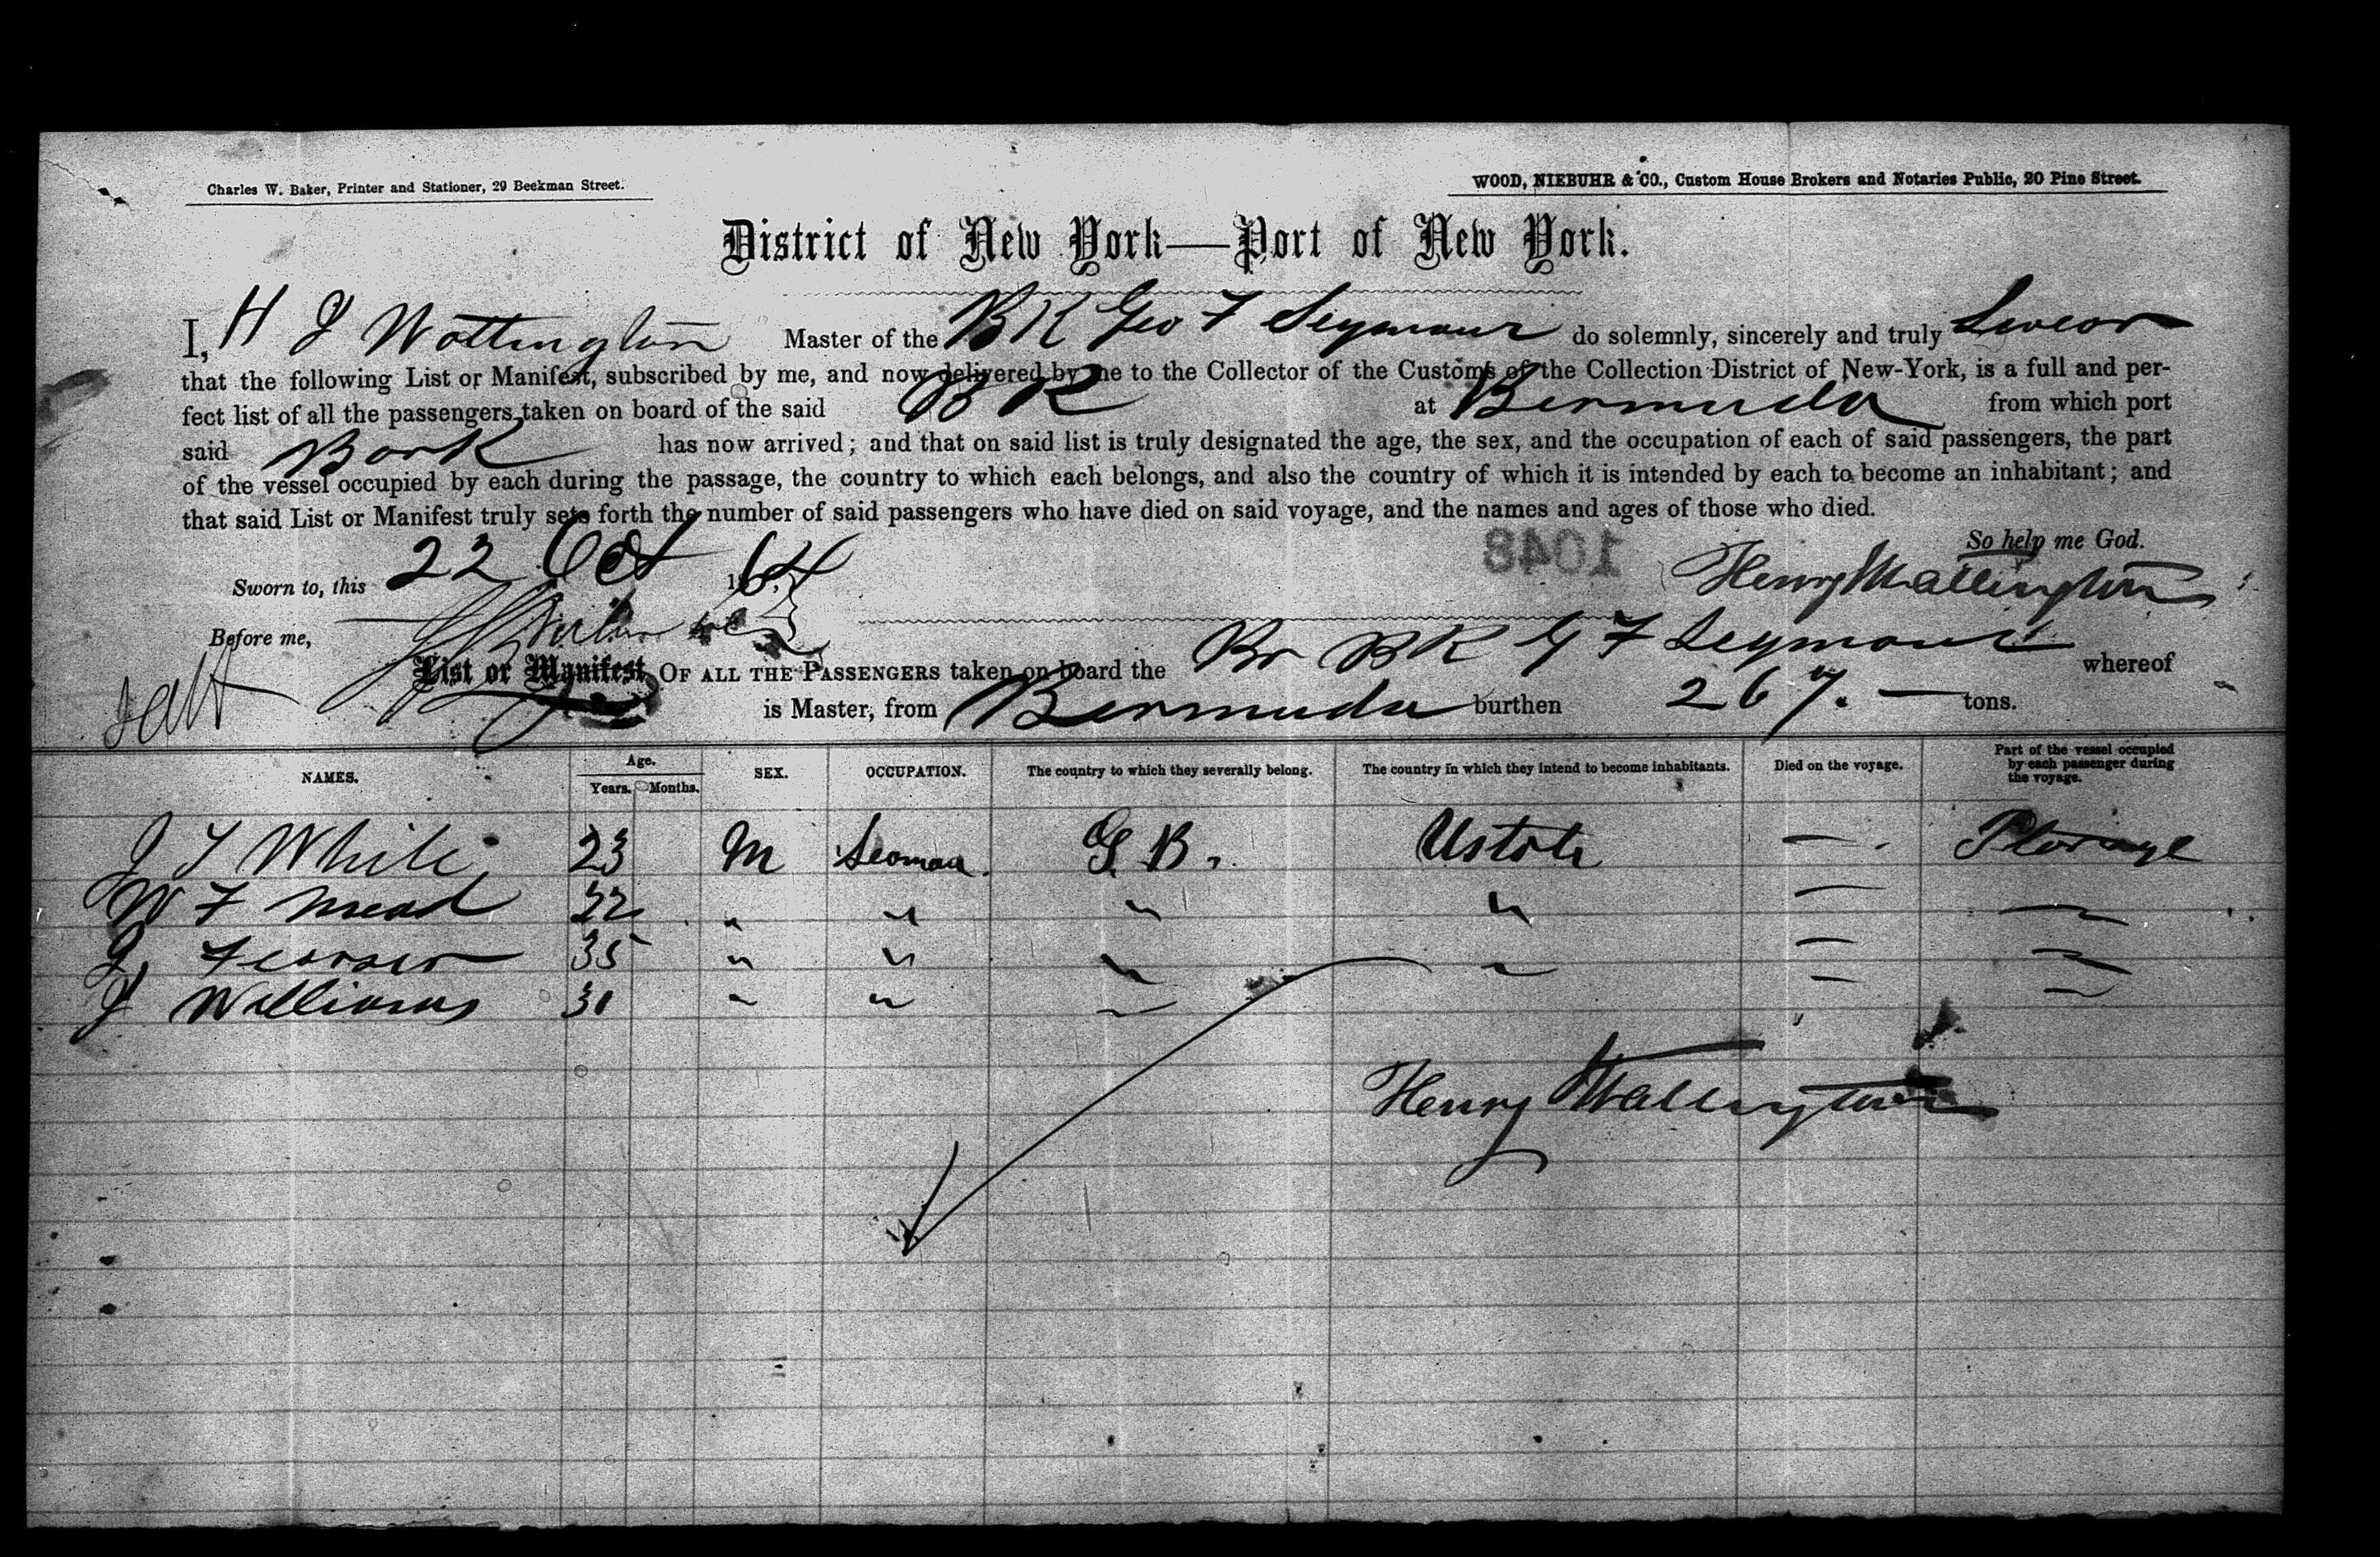 Charles W. Baker, Printer and Stationer, 29 Beekman Street.
WOOD, NIEBUHR & CO., Custom House Brokers and Notaries Public, 20 Pine Street.
District of New York—Port of New York.
I, H J Wattington Master of the BK Geo F Seymour do solemnly, sincerely and truly Swear
that the following List or Manifest, subscribed by me, and now delivered by me to the Collector of the Customs of the Collection District of New-York, is a full and per-
fect list of all the passengers taken on board of the said BK at Bermuda from which port
said Bark has now arrived; and that on said list is truly designated the age, the sex, and the occupation of each of said passengers, the part
of the vessel occupied by each during the passage, the country to which each belongs, and also the country of which it is intended by each to become an inhabitant; and
that said List or Manifest truly sets forth the number of said passengers who have died on said voyage, and the names and ages of those who died.
So help me God.
Sworn to, this 22 Oct 1864
1048
Henry Wattington
Before me,
List or Manifest OF ALL THE PASSENGERS taken on board the Br BK G F Seymour whereof
is Master, from Bermuda burthen 267. — tons.
NAMES. Age. Years. Months. SEX. OCCUPATION. The country to which they severally belong. The country in which they intend to become inhabitants. Died on the voyage. Part of the vessel occupied by each passenger during the voyage.
J T White 23 M Seaman. G. B. — 
W F Mead 22 " " " " —
J. 35 " " " " —
J Williams 30 " " " —
Henry Wattington